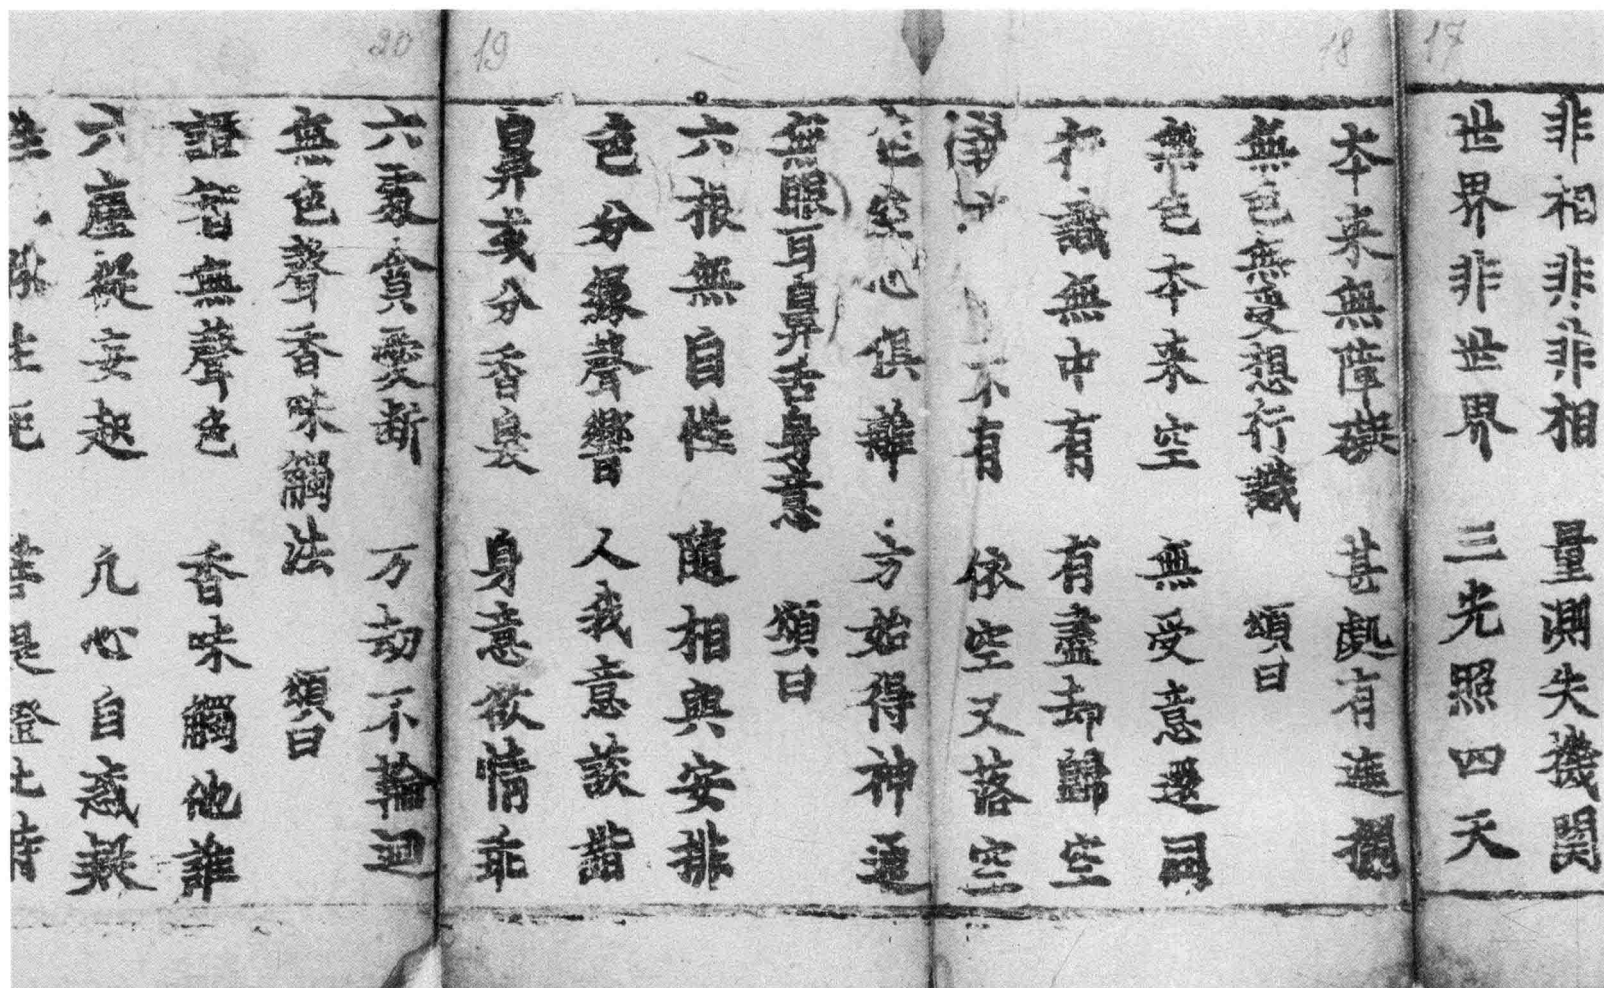 17
非相非非相 量測失機関
世界非世界 三光照四天
18
本来無障礙 甚處有遮攔
無色無受想行識 頌曰
無色本来空 無受意還同
行識無中有 有盡却歸空
不有 依空又落空
心俱離 方始得神通
19
無眼耳鼻舌身意 頌曰
六根無自性 隨相與安排
色分緣聲響 人我意詼諧
鼻或分香臭 身意欲情乖
20
六處貪愛斷 万劫不輪迴
無色聲香味觸法 頌曰
證智無聲色 香味觸他誰
六塵從妄起 凡心自惑疑
生死 菩提證此時